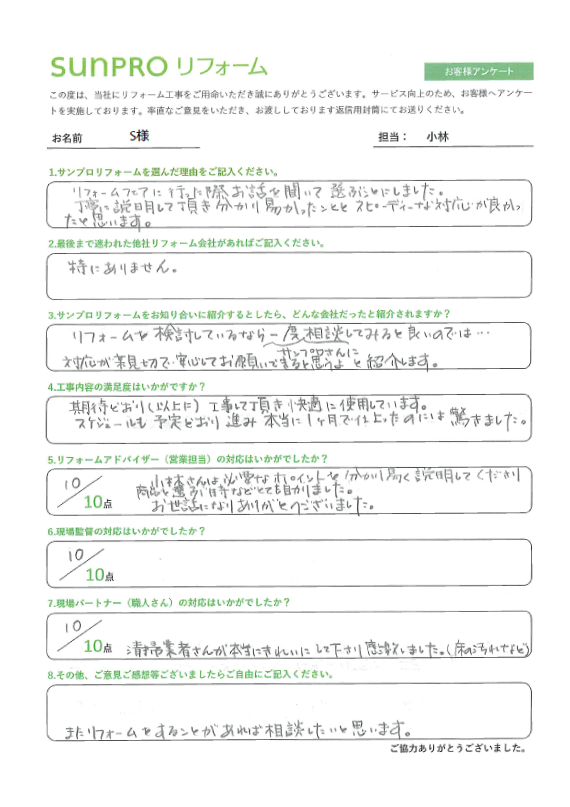 sunpro リフォーム
お客様アンケート
この度は、当社にリフォーム工事をご用命いただき誠にありがとうございます。サービス向上のため、お客様へアンケー
トを実施しております。率直なご意見をいただき、お渡ししております返信用封筒にてお送りください。
お名前 S様 担当： 小林
1.サンプロリフォームを選んだ理由をご記入ください。
リフォームフェアに行った際お話を聞いて選ぶことにしました。
丁寧に説明して頂き分かり易かったことと スピーディーな対応が良かっ
たと思います。
2.最後まで迷われた他社リフォーム会社があればご記入ください。
特にありません。
3.サンプロリフォームをお知り合いに紹介するとしたら、どんな会社だったと紹介されますか？
リフォームを検討しているなら一度相談してみると良いのでは…
サンプロさんに
対応が親切で安心してお願いできると思うよ と紹介します。
4.工事内容の満足度はいかがですか？
期待どおり(以上に)工事して頂き快適に使用しています。
スケジュールも予定どおり進み 本当に1ヶ月で仕上ったのには驚きました。
5.リフォームアドバイザー（営業担当）の対応はいかがでしたか？
10/10点
小林さんは必要なポイントを分かり易く説明してくださり
商品を選ぶ時などとても助かりました。
お世話になりありがとうございました。
6.現場監督の対応はいかがでしたか？
10/10点
7.現場パートナー（職人さん）の対応はいかがでしたか？
10/10点
清掃業者さんが本当にきれいにして下さり感激しました。(床の汚れなど)
8.その他、ご意見ご感想等ございましたらご自由にご記入ください。
またリフォームをすることがあれば相談したいと思います。
ご協力ありがとうございました。